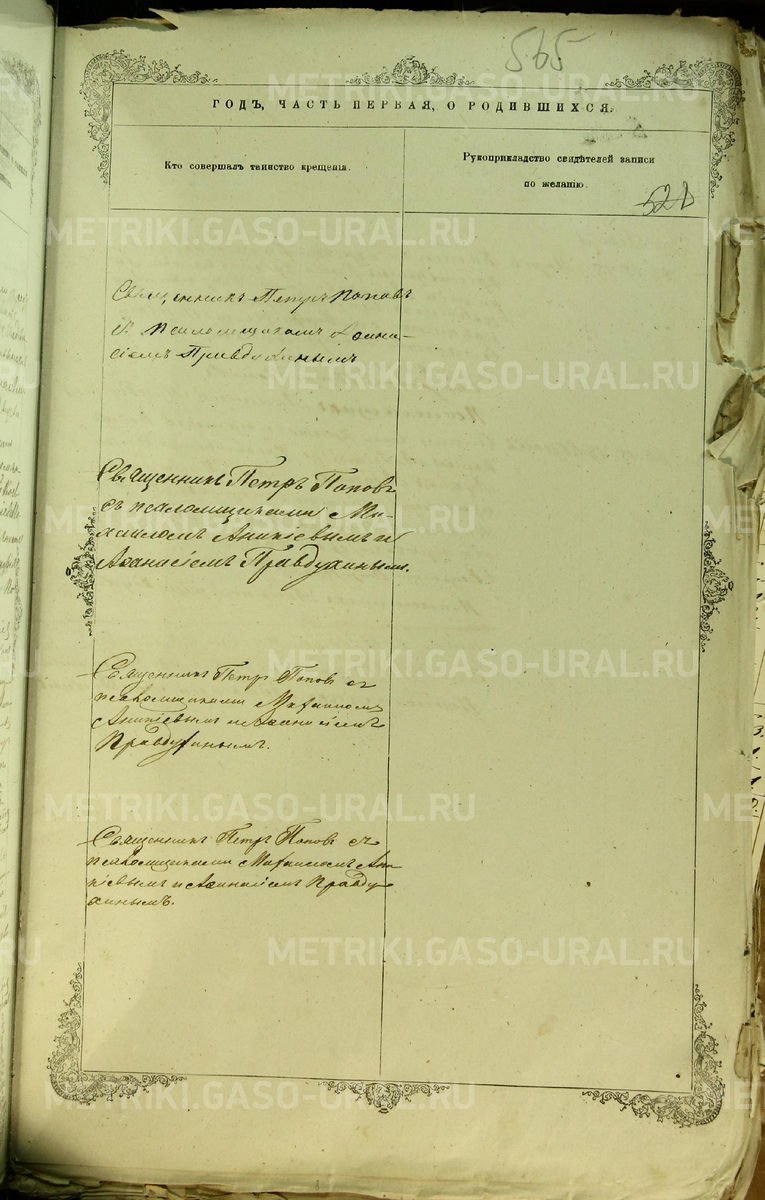 565
ГОДЪ, ЧАСТЬ ПЕРВАЯ, О РОДИВШИХСЯ.
Кто совершалъ таинство крещенія.
Рукоприкладство свидѣтелей записи
по желанію.
521
Священникъ Петръ Поповъ
съ псаломщикомъ Афана-
сіемъ Правдухинымъ
Священникъ Петръ Поповъ
съ псаломщиками Ми-
хаиломъ Аникіевымъ и
Аѳанасіемъ Правдухинымъ.
Священникъ Петръ Поповъ съ
псаломщиками Михаиломъ
Аникіевымъ и Аѳанасіемъ
Правдухинымъ.
Священникъ Петръ Поповъ съ
псаломщиками Михаиломъ Ани
кіевымъ и Аѳанасіемъ Правду
хинымъ.
METRIKI.GASO-URAL.RU